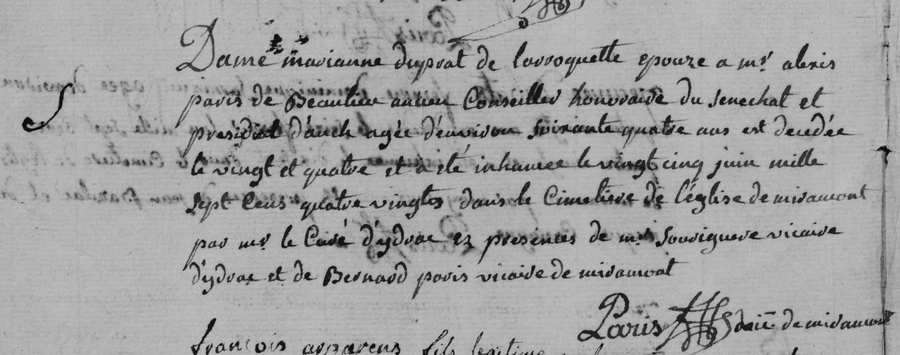 Dame marianne duprat de larroquette epouze a mr alexis
paris de Beaulieu ancien Conseiller honoraire du senechal et
presidial d'auch agée d'environ soixante quatre ans est decedée
le vingt et quatre et a été inhumee le vingt cinq juin mille
sept cens quatre vingts dans le Cimetiere de l'église de miramont
par mr le Curé d'ydrac ez presences de mrs Souriguere vicaire
d'ydrac et de Bernard paris vicaire de miramont
Paris de miramont
françois arparens fils legitime